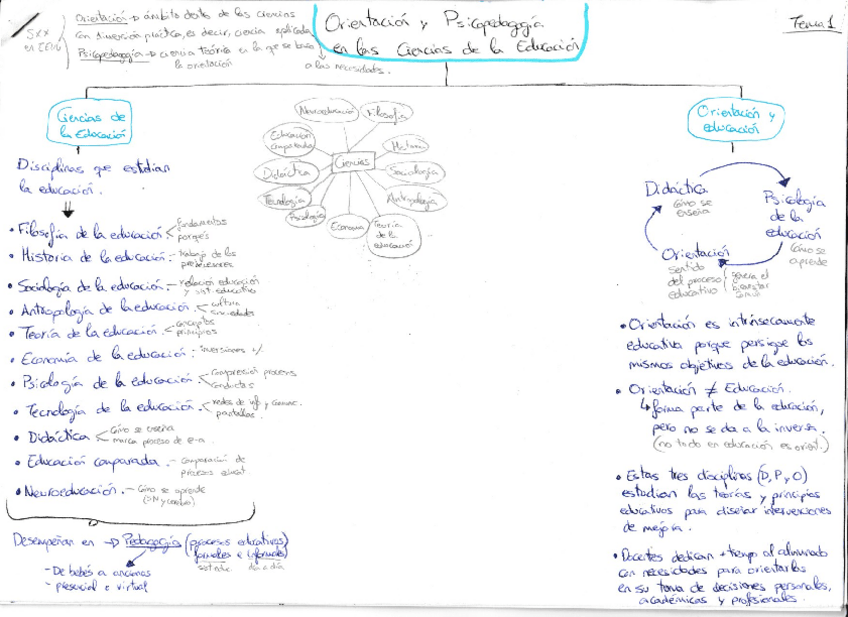 SXX
en EEUU
Orientación → ámbito dentro de las ciencias
con dimensión práctica, es decir, ciencia aplicada
Psicopedagogía → ciencia teórica en la que se basa
la orientación
a las necesidades.
Orientación y Psicopedagogía
en las Ciencias de la Educación
Tema 1
Ciencias de
la Educación
Disciplinas que estudian
la educación.
• Filosofía de la educación < fundamentos
porqués
• Historia de la educación - trabajo de los
predecesores
• Sociología de la educación - relación educación
y sist. educativo
• Antropología de la educación < cultura
sociedades
• Teoría de la educación < conceptos
principios
• Economía de la educación : inversiones +/-
• Psicología de la educación < comprensión procesos
conductas
• Tecnología de la educación < redes de info y comunic.
pantallas
• Didáctica < cómo se enseña
marca proceso de e-a
• Educación comparada - comparación de
procesos educat
• Neuroeducación - Cómo se aprende
(SN y cerebro)
Desempeñan en → Pedagogía (procesos educativos
formales e informales)
día a día
- De bebés a ancianos
- presencial e virtual
Ciencias
Neuroeducación
Filosofía
Historia
Sociología
Antropología
Teoría
de la
educación
Economía
Psicología
Tecnología
Didáctica
Educación
comparada
Orientación y
educación
Didáctica
Cómo se
enseña
Psicología
de la
educación
Cómo se
aprende
Orientación
sentido
del proceso
educativo
genera el
bienestar
• Orientación es intrínsecamente
educativa porque persigue los
mismos objetivos de la educación.
• Orientación ≠ Educación.
↳ forma parte de la educación,
pero no se da a la inversa.
(no todo en educación es orient.)
• Estas tres disciplinas (D, P y O)
estudian las teorías y principios
educativos para diseñar intervenciones
de mejora.
• Docentes dedican + tiempo al alumnado
con necesidades para orientarlos
en su toma de decisiones personales,
académicas y profesionales.